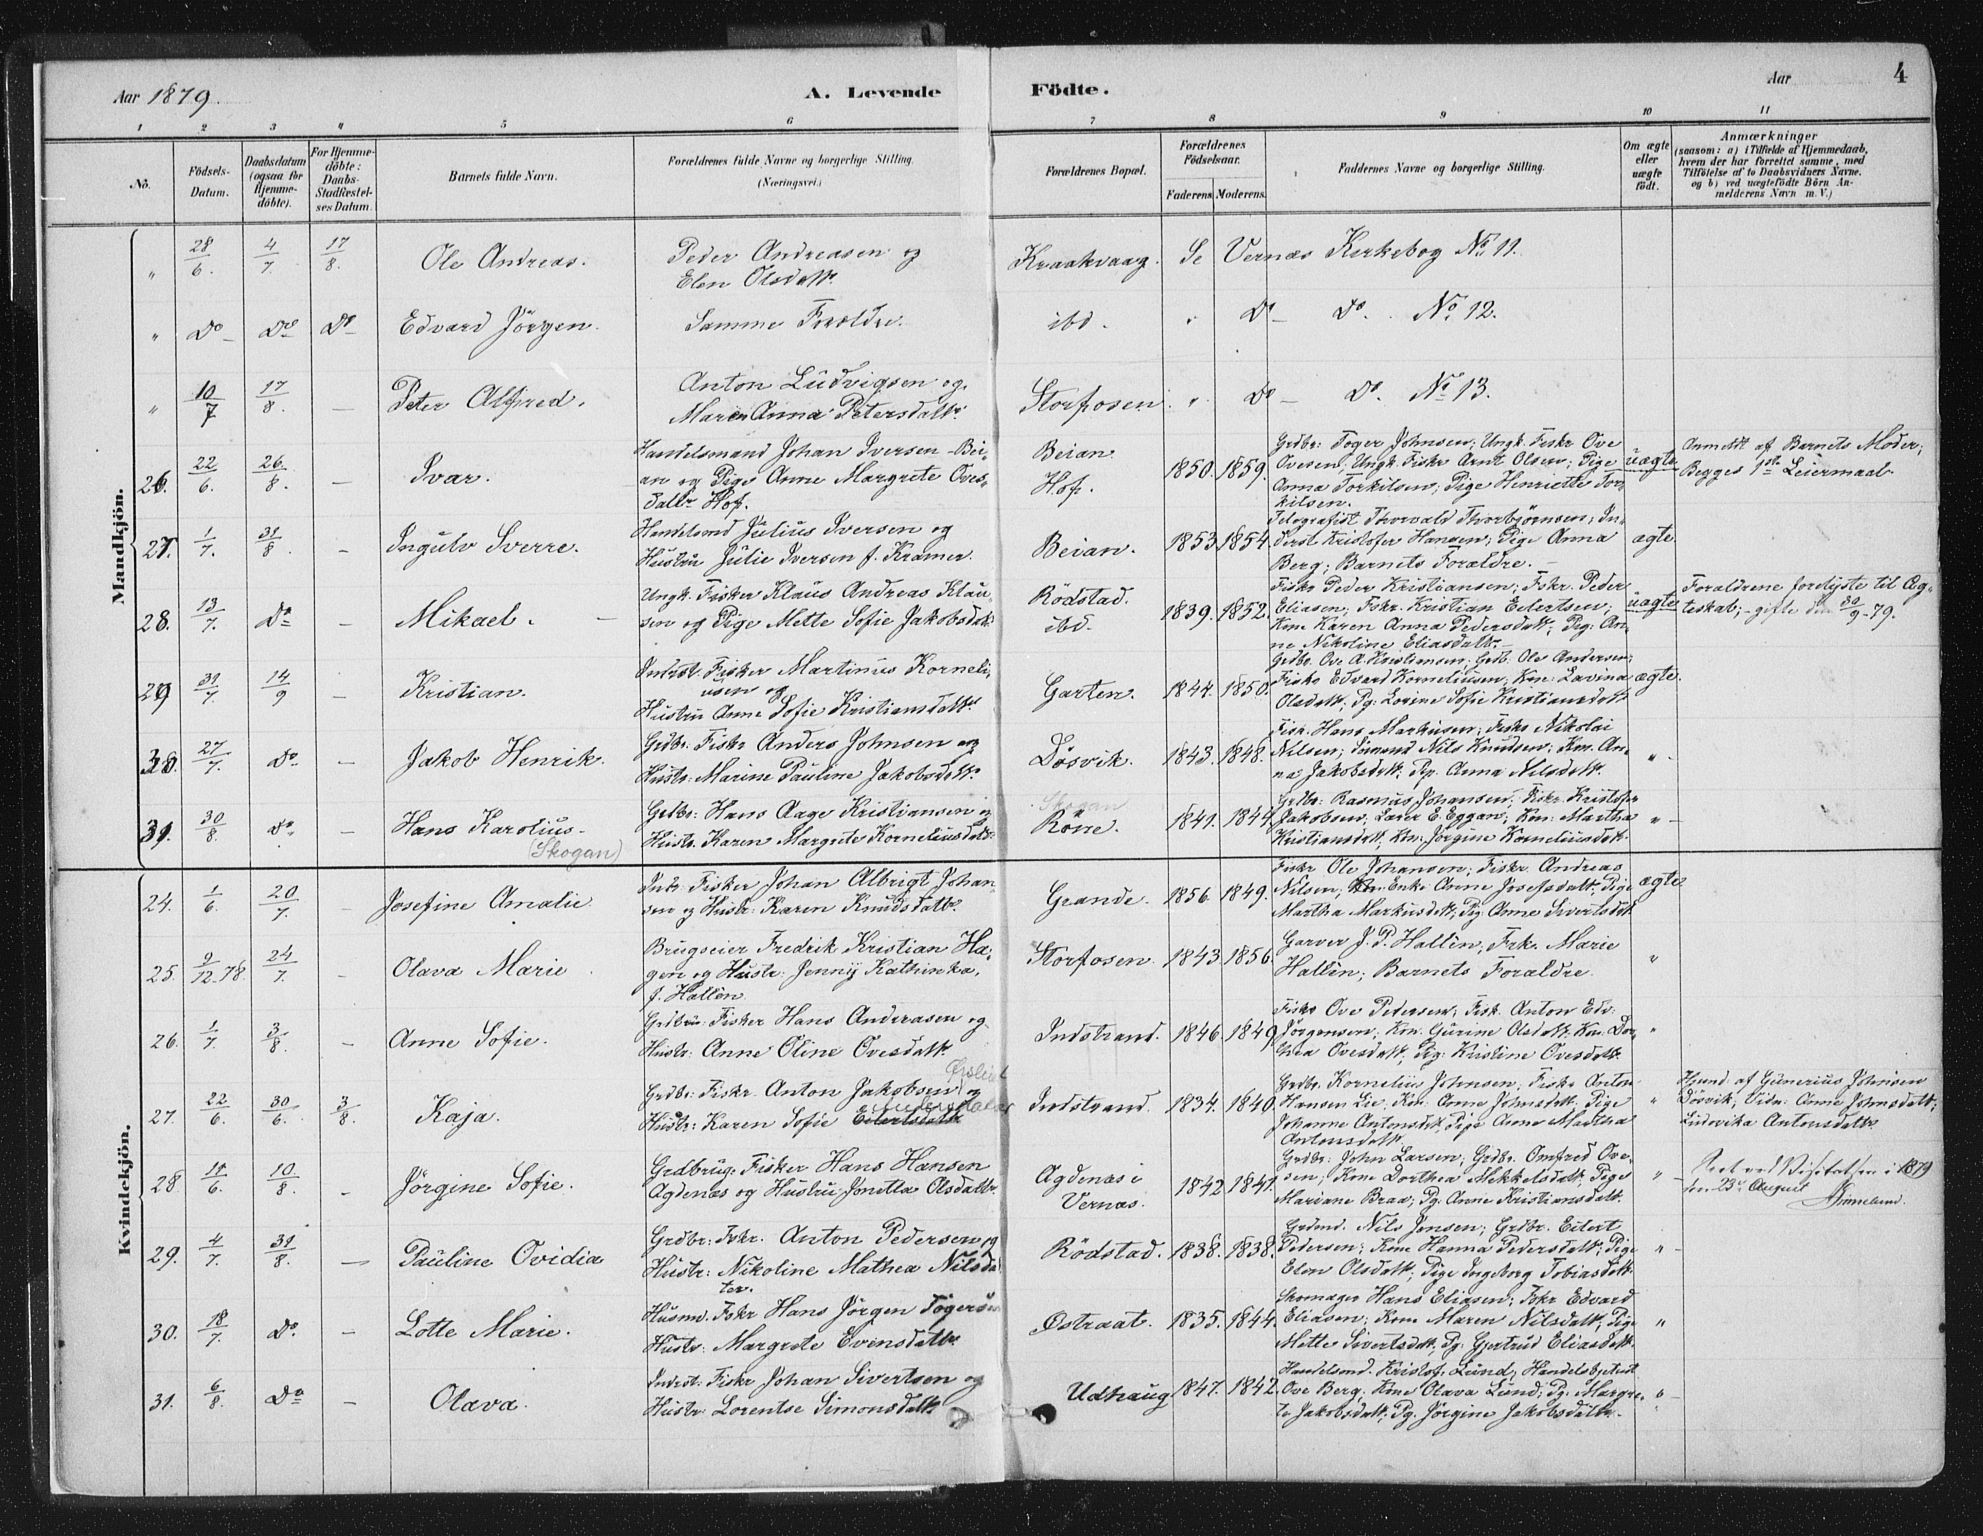 Aar 1879.
A. Levende Födte.
Aar
4
1 2 3 4 5 6 7 8 9 10 11
No.
Födsels-Datum.
Daabsdatum (ogsaa for Hjemme-döbte).
For Hjemme-döbte: Daabs-Stadfæstel-ses Datum.
Barnets fulde Navn.
Forældrenes fulde Navne og borgerlige Stilling. (Næringsvei.)
Forældrenes Bopæl.
Forældrenes Födselsaar.
Faderens. Moderens.
Faddernes Navne og borgerlige Stilling.
Om ægte eller uægte födt.
Anmærkninger
(saasom: a) i Tilfælde af Hjemmedaab,
hvem der har forrettet samme, med
Tilföielse af to Daabsvidners Navne,
og b) ved uægtefödte Börn An-
melderens Navn m. V.)
Mandkjön.
" 28/6. 4/7. 17/8. Ole Andreas. Peder Andreasen og
Elen Olsdatt. Kraakvaag. Se Vernæs Kirkebog No 11.
" Do Do Do Edvard Jörgen. Samme Forældre. ibd. " Do Do. No 12.
" 10/7 17/8. – Peter Alfred. Anton Ludvigsen og
Maren Anna Petersdatt. Storfosen. " Do Do. No 13.
26. 22/6. 26/8. – Ivar. Handelsmand Johan Iversen Bei-
an og Pige Anne Margrete Oves-
datt. Hof. Beian
Hof. 1850. 1859. Grdbr: Toger Johnsen; Ungk. Fiskr Ove
Ovesen; Ungk. Fiskr Arnt Olsen; Pige
Anna Torkilsen; Pige Henriette Tor-
kilsen. uægte Anmeldt af Barnets Moder;
Begges 1ste Leiermaal.
27. 1/7. 31/8. – Ingulv Sverre. Handelsmd Julius Iversen og
Hustru Julie Iversen f. Kramer. Beian. 1853. 1854. Telegrafist Thorvald Thorbjörnsen; In-
derst Kristofer Hansen; Pige Anna
Berg; Barnets Forældre. ægte.
28. 13/7. Do – Mikael. Ungk. Fisker Klaus Andreas Klau-
sen og Pige Mette Sofie Jakobsdatt. Rödstad.
ibd. 1839. 1852. Fiskr Peder Kristiansen; Fskr. Peder
Eliasen; Fskr. Kristian Eilertsen;
Kone Karen Anna Pedersdatt; Pig: An-
ne Nikoline Eliasdatt. uægte Forældrene foreviste til Æg-
teskab; – gifte den 30/9 – 79.
29 31/7. 14/9 – Kristian. Inderst. Fisker Martinus Korneli-
usen og
Hustru Anne Sofie Kristiansdatt. Garten. 1844. 1850. Grdbr. Ove A. Kristiansen; Grdb. Ole Andersen;
Fiskr Edvard Korneliusen; Kne: Lavina
Olsdatt; Pg: Lovine Sofie Kristiansdatt. ægte.
30. 27/7. Do – Jakob Henrik. Grdbr: Fiskr Anders Johnsen og
Hustr: Marine Pauline Jakobsdatt. Dösvik. 1843. 1848. Fisr. Hans Markusen; Fiskr Nikolai
Nilsen; Sömand Nils Knudsen; Kne. An-
na Jakobsdatt; Pig. Anna Nilsdatt. "
31. 30/8. Do – Hans Karolius.
(Skogan) Grdbr: Hans Aage Kristiansen og
Hustr. Karen Margrete Korneliusdatt. Skogan
Röne. 1841. 1844. Grdbr: Rasmus Johansen; Fiskr. Kristofer
Jakobsen; Lærer E. Eggan; Kne: Martha
Kristiansdatt; Kne: Jörgine Korneliusdatt. "
Kvindekjön.
24. 1/6. 20/7. – Josefine Amalie Indr: Fisker Johan Albrigt Johan-
sen og Hustr: Karen Knudsdatt. Grande. 1856. 1849. Fiskr Ole Johansen; Fiskr. Andreas
Nilsen; Enke Anne Josefsdatt; Pige
Martha Markusdatt; Pig: Anne Sivertsdat. ægte
25. 9/12-78. 24/7. – Olava Marie Brugseier Fredrik Kristian Ha-
gen og Hustr: Jenny Kathinka,
f. Hallén Storfosen. 1843. 1856. Garver J. P. Hallén; Frk. Marie
Hallén; Barnets Forældre. "
26. 1/7. 3/8. – Anne Sofie. Grdbru: Fisker Hans Andreasen og
Hustr: Anne Oline Ovesdatt. Indstrand. 1846. 1849 Fiskr Ove Pedersen; Fisk. Anton Edv.
Jörgensen; Kne. Gurine Olsdatt; Kne. Dor-
thea Ovesdatt; Pig: Kristine Ovesdatt. "
27. 22/6. 30/6. 3/8. Kaja. Grdbr: Fiskr. Anton Jakobsen og
Hustr: Karen Sofie Eilertsdatt Indstrand. 1834. 1840. Grdbr. Kornelius Johnsen; Fiskr Anton
Hansen Lie; Kne. Anne Johnsdatt; Pige
Johanne Antonsdatt; Pige Anne Martha
Antonsdatt. " Hjmd. af Gunerius Johnsen
Dösvik; Vidn: Anne Johnsdatt;
Ludovika Antonsdatt.
28. 11/6. 10/8. – Jörgine Sofie. Grdbrug. Fisker Hans Hansen
Agdenæs og Hustru Jonetta Olsdatt. Agdenæs i
Vernæs. 1842 1841. Grdbr: John Larsen; Grdbr. Omfred Ove-
sen; Kone Dorthea Mekkelsdatt; Pige
Mariane Braa; Pg: Anne Kristiansdatt. " Seet ved Visitatsen i 1879
den 23de August
29. 4/7. 31/8. – Pauline Ovidia Grdbr: Fskr. Anton Pedersen og
Hustr: Nikoline Mathea Nilsda-
ter. Rödstad. 1838. 1838. Grdmd. Nils Jensen; Grdbr. Eilert
Pedersen; Kone Hanna Pedersdatt; Pige
Elen Olsdatt; Pige Ingeborg Tobiasdatt. "
30. 18/7. Do. – Lotte Marie. Husmd. Fskr Hans Jörgen Togersen
Hustr: Margrete Evensdatt. Østraat. 1835. 1844. Skomager Hans Eliasen; Fskr Edvard
Eliasen; Kone Maren Nilsdatt; Pige
Mette Sivertsdatt; Pg: Gjertrud Eliasdatt. "
31. 6/8. Do – Olava. Inderst: Fiskr Johan Sivertsen og
Hustr Lorentse Simonsdatt. Udhaug 1847. 1842. Handelsmd. Kristof. Lund; Handelsbetjent
Ove Berg; Kone Olava Lund; Pg: Margre-
te Jakobsdatt; Pg. Jörgine Jakobsdatt. "